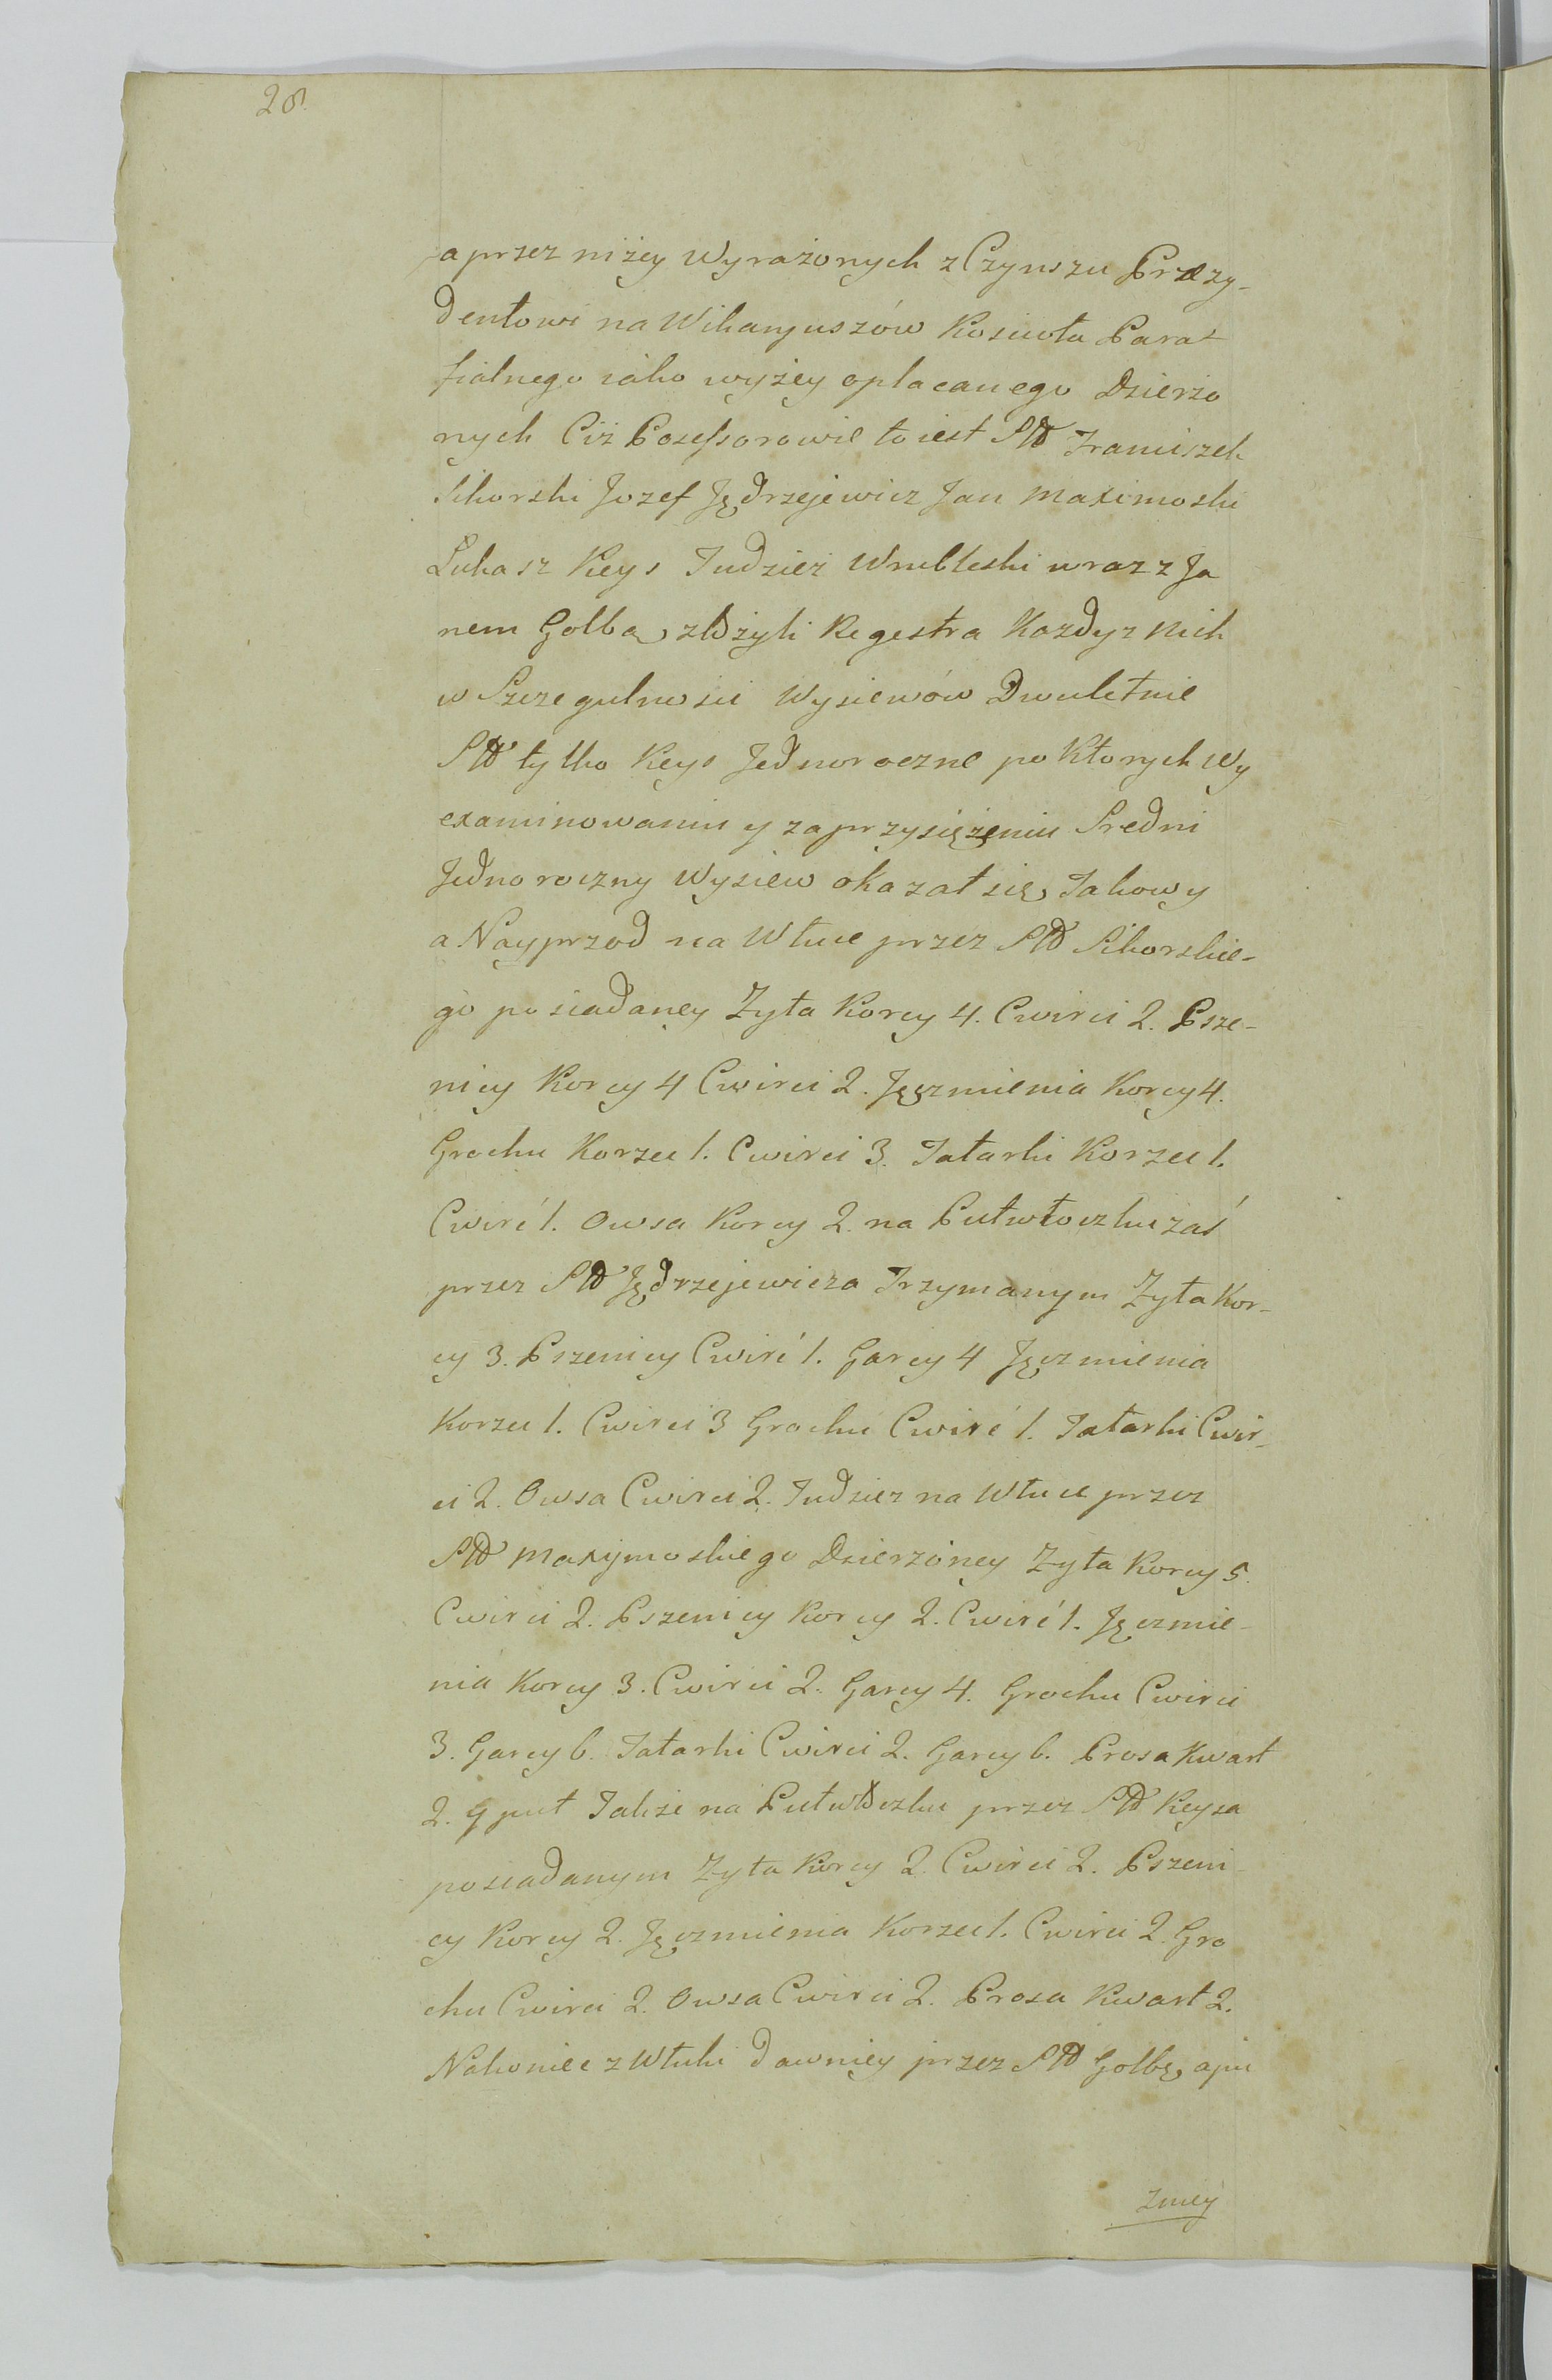 28.
a przez niżey Wyrażonych z Czynszu Prezy-
dentowi na Wikaryuszów Kościoła Para-
fialnego iako wyżey opłacanego Dzierżo
nych Ciż Posessorowie to iest Sł Franciszek
Sikorski Jozef Jędrzejewicz Jan Maximoski
Łukasz Keys Tudzież Wrubleski wraz z Ja
nem Golbą złożyli Regestra Kazdy z Nich
w Szczegulności Wysiewów Dwuletnie
Sł tylko Keys Jednoroczne po Ktorych Wy
examinowaniu y zaprzysiężeniu Sredni
Jednoroczny Wysiew okazał się Takowy
a Nayprzod na Włuce przez Sł Sikorskie-
go posiadaney Zyta Korcy 4. Cwirci 2. Psze-
nicy Korcy 4 Cwirci 2. Jęczmienia Korcy 4.
Grochu Korzec 1. Cwirci 3. Tatarki Korzec 1.
Cwirć 1. Owsa Korcy 2. na Pułwłoczku zaś
przez Sł Jędrzejewicza Trzymanym Zyta Kor-
cy 3. Pszenicy Cwirć 1. Garcy 4 Jęczmienia
Korzec 1. Cwirci 3 Grochu Cwirć 1. Tatarki Cwir-
ci 2. Owsa Cwirci 2. Tudziez na Włuce przez
Sł Maxymoskiego Dzierzóney Zyta Korcy 5.
Cwirci 2. Pszenicy Korcy 2. Cwirć 1. Jęczmie-
nia Korcy 3. Cwirci 2. Garcy 4. Grochu Cwirci
3. Garcy 6. Tatarki Cwirci 2. Garcy 6. Prosa Kwart
2. y puł Także na Pułwłoczku przez Sł Keysa
posiadanym Zyta Korcy 2. Cwirci 2. Pszeni-
cy Korcy 2. Jęczmienia Korzec 1. Cwirci 2. Gro
chu Cwirci 2. Owsa Cwirci 2. Prosa Kwart 2.
Nakoniec z Włuki dawniey przez Sł Golbę, a po
zniey